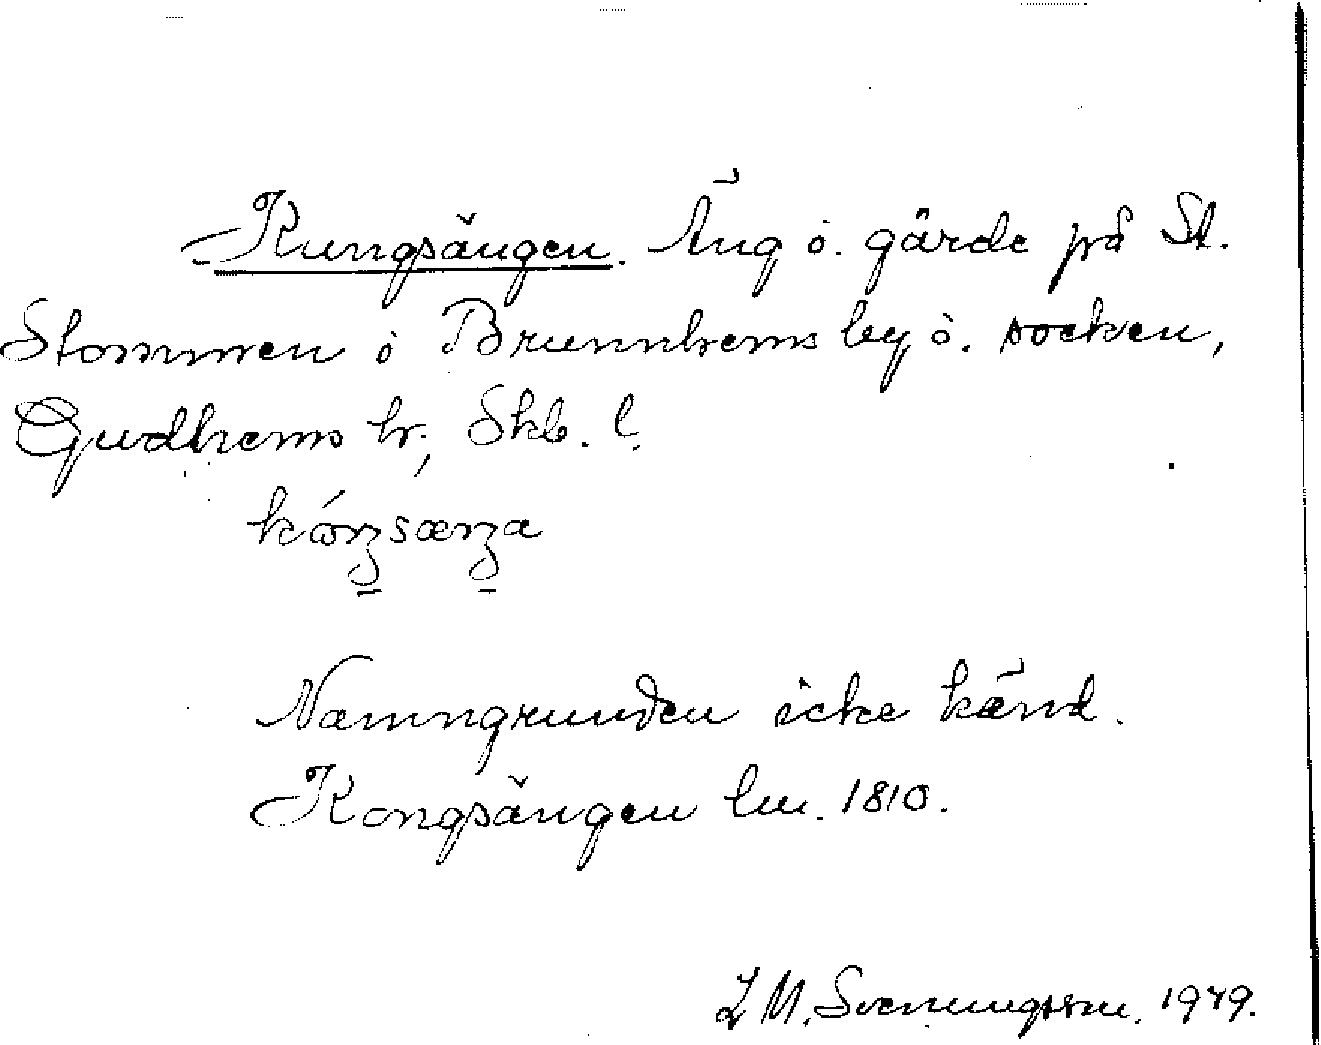 Kungsängen. Äng o. gärde på St.
Stommen i Brunnhems by o. socken,
Gudhems hr, Skb. l.
kóŋsæŋa
Namngrunden icke känd.
Kongsängen lm. 1810.
L M. Svenungsson. 1949.